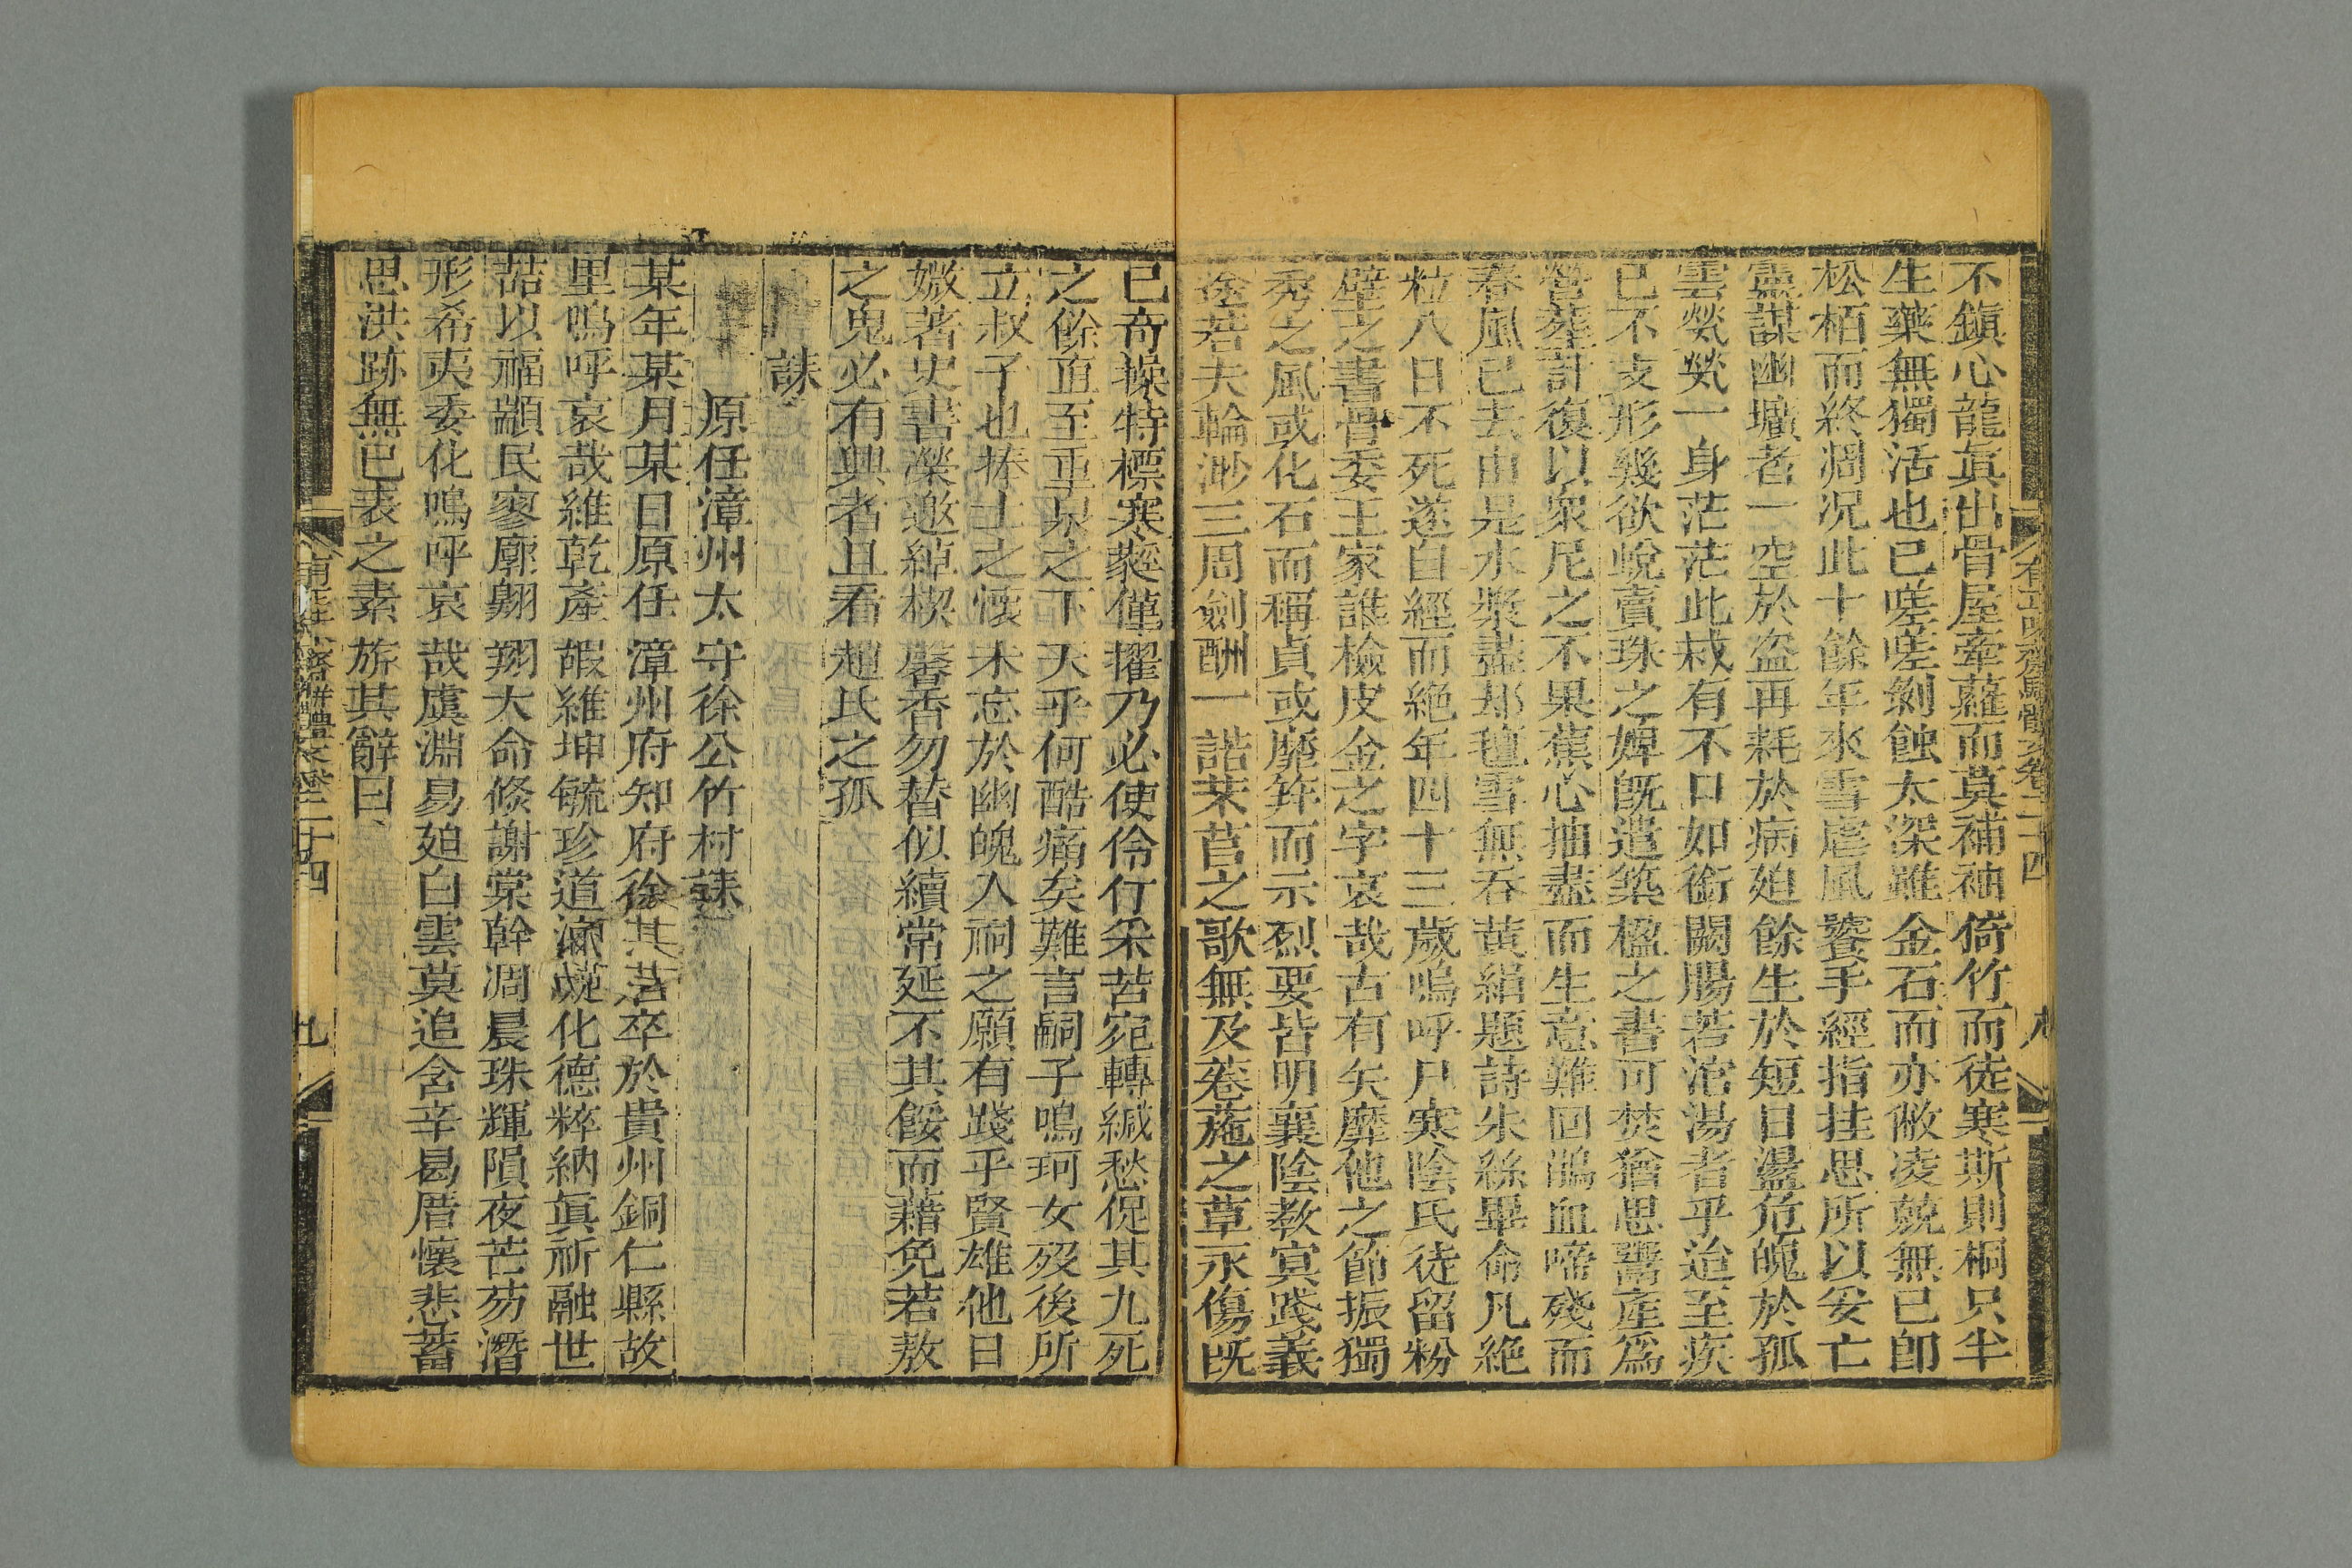 不鎮心龍眞出骨屋牽蘿而莫補袖倚竹而徒寒斯則桐只半
生藥無獨活也已嗟嗟剝蝕太深雖金石而亦敝凌兢無已卽
松栢而終凋況此十餘年氷雪虐風饕手經指挂思所以妥亡
靈謀幽壙者一空於盜再耗於病廹餘生於短日盪危魄於孤
雲煢煢一身茫茫此烖有不口如銜闕腸若涫湯者乎迨至疾
已不支形幾欲蛻賣珠之婢旣遣築楹之書可焚猶思鬻產爲
營葬計復以衆尼之不果蕉心抽盡而生意難回鵑血啼殘而
春風已去由是水漿盡却氊雪無吞黃絹題詩朱絲畢命凡絶
粒八日不死遂自經而絶年四十三歲嗚呼尸寒陰氏徒留粉
壁之書骨委王家誰檢皮金之字哀哉古有矢靡他之節振獨
秀之風或化石而稱貞或靡筓而示烈要皆明襄陰教寘踐義
途若夫輪渺三周劍酬一諾芣苢之歌無及菤葹之草永傷旣
已奇操特標寒蕤僅擢乃必使伶仃采苦宛轉緘愁促其九死
之餘直至重泉之下天乎何酷痛矣難言嗣子鳴珂女歿後所
立叔子也捧土之懷未忘於幽魄入祠之願有踐乎賢雄他日
媺著史書灤邀綽楔馨香勿替似續常延不其餒而藉免若敖
之鬼必有興者且看趙氏之孤
誄
原任漳州太守徐公竹村誄
某年某月某日原任漳州府知府徐某君卒於貴州銅仁縣故
里嗚呼哀哉維乾產嘏維坤毓珍道瀛蔬化德粹納眞祈融世
喆以福顓民寥廓翺翔大命倏謝棠幹凋晨珠輝隕夜芒芴潛
形希夷委化嗚呼哀哉虞淵易廹白雲莫追含辛曷厝懷悲蓄
思洪跡無已表之素旂其辭曰